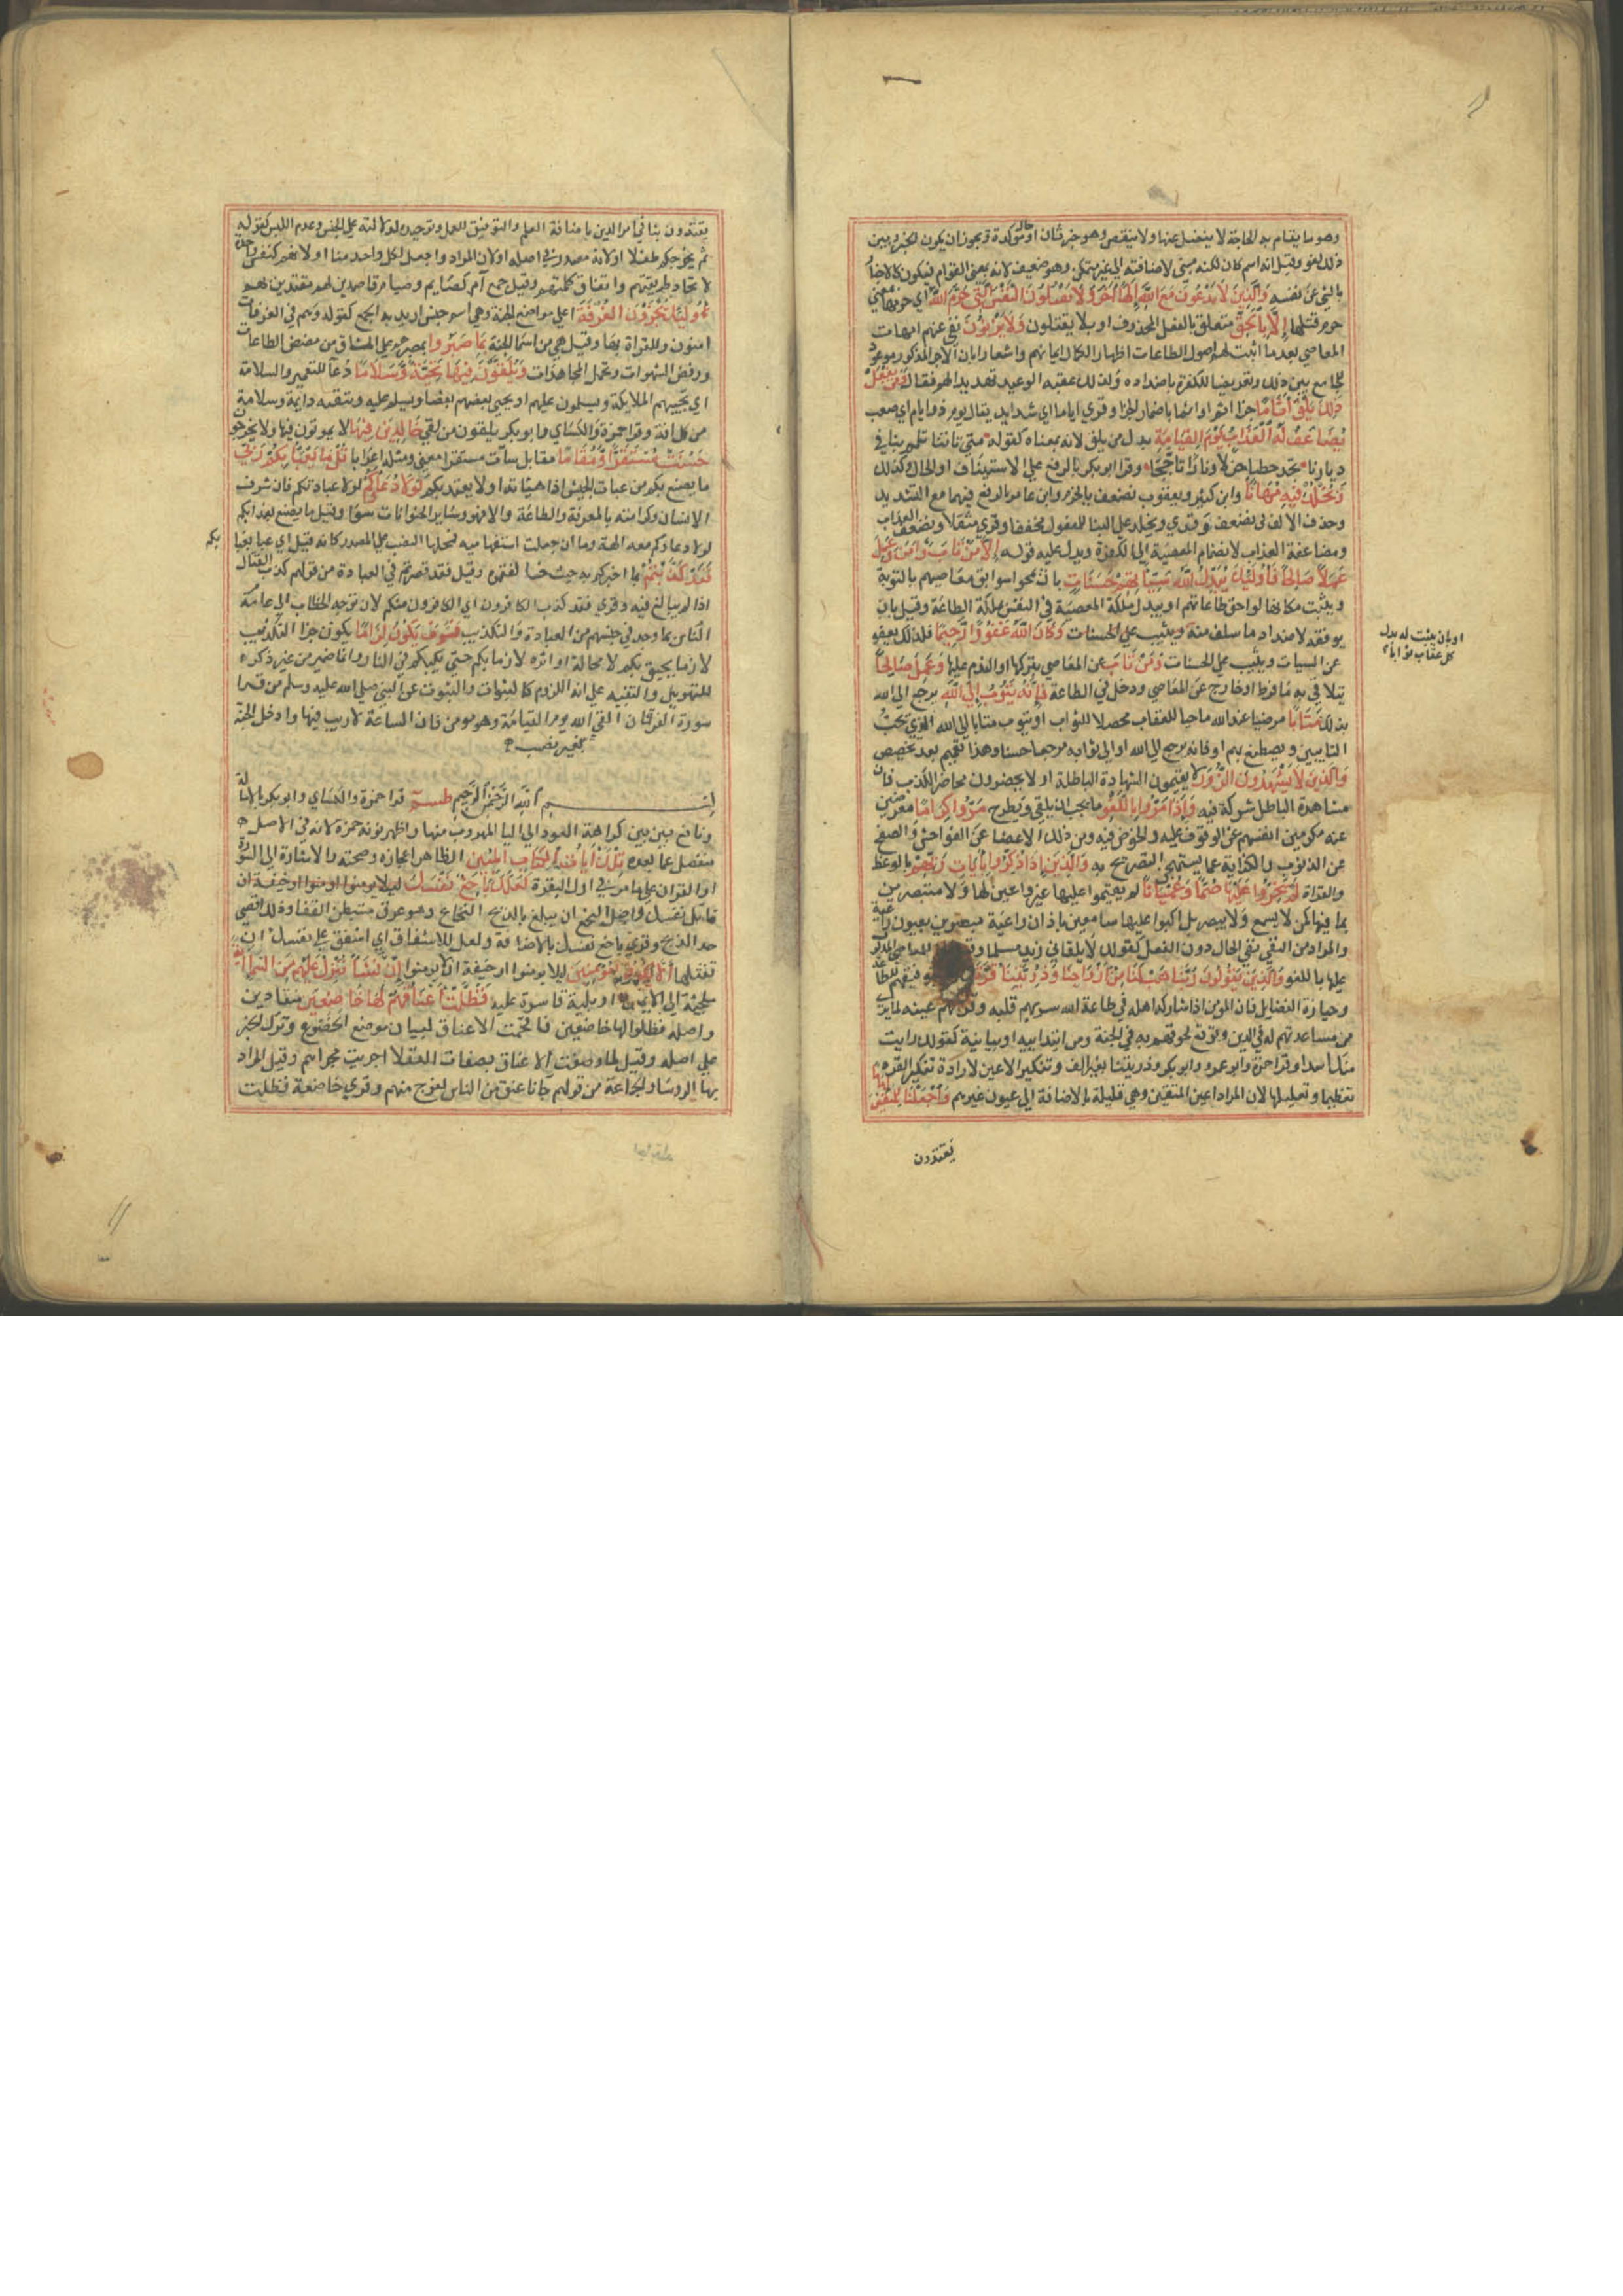 وهو ما يقام به الحاجة لا يفضل عنها ولا ينقص وهو خبر ثان او حال مؤكدة ويجوز ان يكون الخبر وبين
ذلك لغو وقيل انه اسم كان لكنه مبني لاضافته الي غير متمكن وهو ضعيف لانه بمعني القوام فيكون كالاخبار
بالشي عن نفسه وَالَّذِينَ لَا يَدْعُونَ مَعَ اللَّهِ إِلَهًا آخَرَ وَلَا يَقْتُلُونَ النَّفْسَ الَّتِي حَرَّمَ اللَّهُ اي حرمها بمعني
حرم قتلها إِلَّا بِالْحَقِّ متعلق بالفعل المحذوف او بلا يقتلون وَلَا يَزْنُونَ نفي عنهم امهات
المعاصي بعد ما اثبت لهم اصول الطاعات اظهارا لكمال ايمانهم واشعارا بان الاجر المذكور موعود
للجامع بين ذلك وتعريضا للكفرة باضداده ولذلك عقبه الوعيد تهديدا لهم فقال وَمَنْ يَفْعَلْ
ذَلِكَ يَلْقَ أَثَامًا جزا اثم او اثما باضمار الجزا وقري اياما اي شدايد يقال يوم ذو ايام اي صعب
يُضَاعَفْ لَهُ الْعَذَابُ يَوْمَ الْقِيَامَةِ بدل من يلق لانه بمعناه كقوله متي تاتنا تلمم بنا في
ديارنا تجد حطبا جزلا ونارا تاججا وقرا ابو بكر بالرفع علي الاستيناف او الحال وكذلك
وَيَخْلُدْ فِيهِ مُهَانًا وابن كثير ويعقوب يضعف بالجزم وابن عامر بالرفع فيهما مع التشديد
وحذف الالف في يضعف وقري ويخلد علي البنا للمفعول مخففا وقري مثقلا وتضعف له العذاب
ومضاعفة العذاب لانضمام المعصية الي الكفر ويدل عليه قوله إِلَّا مَنْ تَابَ وَآمَنَ وَعَمِلَ
عَمَلًا صَالِحًا فَأُولَئِكَ يُبَدِّلُ اللَّهُ سَيِّئَاتِهِمْ حَسَنَاتٍ بان يمحو سوابق معاصيهم بالتوبة
ويثبت مكانها لواحق طاعاتهم او يبدل ملكة المعصية في النفس ملكة الطاعة وقيل بان
يوفقه لاضداد ما سلف منه ويثيب علي الحسنات وَكَانَ اللَّهُ غَفُورًا رَحِيمًا فلذلك يعفو
عن السيات ويثيب علي الحسنات وَمَنْ تَابَ عن المعاصي بتركها والندم عليها وَعَمِلَ صَالِحًا
يتلافي به ما فرط او خارج عن المعاصي ودخل في الطاعة فَإِنَّهُ يَتُوبُ إِلَى اللَّهِ يرجع الي الله
بذلك مَتَابًا مرضيا عند الله ماحيا للعقاب محصلا للثواب او يتوب متابا الي الله الذي يحب
التايبين ويصطنع بهم او فانه يرجع الي الله او الي ثوابه مرجعا حسنا وهذا تعميم بعد تخصيص
وَالَّذِينَ لَا يَشْهَدُونَ الزُّورَ لا يقيمون الشهادة الباطلة او لا يحضرون محاضر الكذب فان
مشاهدة الباطل شركة فيه وَإِذَا مَرُّوا بِاللَّغْوِ ما يجب ان يلقي ويطرح مَرُّوا كِرَامًا معرضين
عنه مكرمين انفسهم عن الوقوف عليه والخوض فيه ومن ذلك الاغضا عن الفواحش والصفح
عن الذنوب والكناية عما يستهجن التصريح به وَالَّذِينَ إِذَا ذُكِّرُوا بِآيَاتِ رَبِّهِمْ بالوعظ
والقراة لَمْ يَخِرُّوا عَلَيْهَا صُمًّا وَعُمْيَانًا لم يقيموا عليها غير واعين لها ولا متبصرين
بما فيها كمن لا يسمع ولا يبصر بل اكبوا عليها سامعين باذان واعية مبصرين بعيون راعية
والمراد من النفي نفي الحال دون الفعل كقولك لا يلقاني زيد مسلما للمعاصي المدلول
عليها باللغو وَالَّذِينَ يَقُولُونَ رَبَّنَا هَبْ لَنَا مِنْ أَزْوَاجِنَا وَذُرِّيَّاتِنَا قُرَّةَ بتوفيقهم للطاعة
وحيازة الفضايل فان المومن اذا شاركه اهله في طاعة الله سر بهم قلبه وقر بهم عينه لما يري
من مساعدتهم له في الدين وتوقع لحوقهم به في الجنة ومن ابتدايية او بيانية كقولك رايت
منك اسدا وقرا حمزة وابو عمرو وابو بكر وذريتنا بغير الف وتنكير الاعين لارادة تنكير القرة
تعظيما وتقليلها لان المراد اعين المتقين وهي قليلة بالاضافة الي عيون غيرهم وَاجْعَلْنَا لِلْمُتَّقِينَ إِمَامًا
يقتدون
او بان يثبت له بدل
كل عقاب ثوابا
يقتدون بنا في امر الدين باضافة العلم والتوفيق للعمل وتوحيده لدلالته علي الجنس وعدم اللبس كقوله
ثم يخرجكم طفلا او لانه مصدر في اصله او لان المراد واجعل كل واحد منا او لانهم كنفس واحدة
لاتحاد طريقتهم واتفاق كلمتهم وقيل جمع آم كصايم وصيام ومعناه قاصدين لهم مقتدين بهم
أُولَئِكَ يُجْزَوْنَ الْغُرْفَةَ اعلي مواضع الجنة وهي اسم جنس اريد به الجمع كقوله وهم في الغرفات
امنون وللقراة بها وقيل هي من اسما الجنة بِمَا صَبَرُوا بصبرهم علي المشاق من مضض الطاعات
ورفض الشهوات وتحمل المجاهدات وَيُلَقَّوْنَ فِيهَا تَحِيَّةً وَسَلَامًا دعا للتعمير والسلامة
اي تحييهم الملايكة ويسلمون عليهم او يحيي بعضهم بعضا ويسلم عليه او تبقية دايمة وسلامة
من كل افة وقرا حمزة والكساي وابو بكر يلقون من لقي خَالِدِينَ فِيهَا لا يموتون فيها ولا يخرجون
حَسُنَتْ مُسْتَقَرًّا وَمُقَامًا مقابل سات مستقرا معني ومثله اعرابا قُلْ مَا يَعْبَأُ بِكُمْ رَبِّي
ما يصنع بكم من عبات الجيش اذا هياته او لا يعتد بكم لَوْلَا دُعَاؤُكُمْ لولا عبادتكم فان شرف
الانسان وكرامته بالمعرفة والطاعة والا فهو وساير الحيوانات سوا وقيل ما يصنع بعذابكم
لولا دعاوكم معه الهة وما ان جعلت استفهامية فمحلها النصب علي المصدر كانه قيل اي عبا يعبا
بكم
فَقَدْ كَذَّبْتُمْ بما اخبرتكم به حيث خالفتموه وقيل فقد قصرتم في العبادة من قولهم كذب القتال
اذا لم يبالغ فيه وقري فقد كذب الكافرون اي الكافرون منكم لان توجه الخطاب الي عامة
الناس بما وجد في جنسهم من العبادة والتكذيب فَسَوْفَ يَكُونُ لِزَامًا يكون جزا التكذيب
لازما يحيق بكم لا محالة او اثره لازما بكم حتي يكبكم في النار وانما اضمر من غير ذكره
للتهويل والتنبيه علي انه اللزوم كالثبات والثبوت عن النبي صلي الله عليه وسلم من قرا
سورة الفرقان لقي الله يوم القيامة وهو مومن فان الساعة لا ريب فيها وادخل الجنة
بغير نصب
بسم الله الرحمن الرحيم طسم قرا حمزة والكساي وابو بكر بالامالة
ونافع بين بين كراهة العود الي اليا المهروب منها واظهر نونه حمزة لانه في الاصل
منفصل عما بعده تِلْكَ آيَاتُ الْكِتَابِ الْمُبِينِ الظاهر اعجازه وصحته والاشارة الي السورة
او القران علي ما مر في اول البقرة لَعَلَّكَ بَاخِعٌ نَفْسَكَ
قاتل نفسك واصل البخع ان يبلغ بالذبح النخاع وهو عرق مستبطن القفا وذلك اقصي
حد الذبح وقري باخع نفسك بالاضافة ولعل للاشفاق اي اشفق علي نفسك ان
تقتلها أَلَّا يَكُونُوا مُؤْمِنِينَ ليلا يومنوا او خيفة ان لا يومنوا إِنْ نَشَأْ نُنَزِّلْ عَلَيْهِمْ مِنَ السَّمَاءِ آيَةً
ملجئة الي الايمان او بلية قاسرة عليه فَظَلَّتْ أَعْنَاقُهُمْ لَهَا خَاضِعِينَ منقادين
واصله فظلوا لها خاضعين فاقحمت الاعناق لبيان موضع الخضوع وترك الخبر
علي اصله وقيل لما وصفت الاعناق بصفات العقلا اجريت مجراهم وقيل المراد
بها الروسا والجماعة من قولهم جانا عنق من الناس لفوج منهم وقري خاضعة فظلت